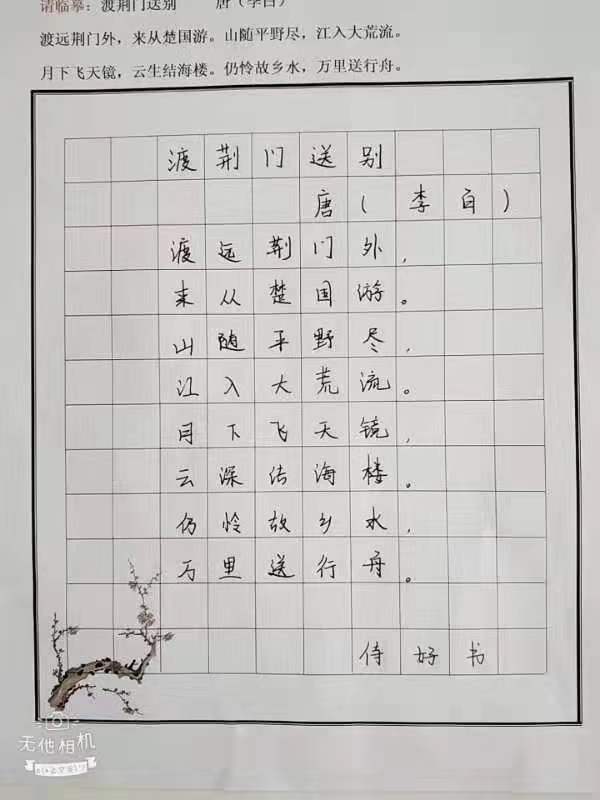 请临摹：渡荆门送别 唐（李白）
渡远荆门外，来从楚国游。山随平野尽，江入大荒流。
月下飞天镜，云生结海楼。仍怜故乡水，万里送行舟。
渡荆门送别
唐（李白）
渡远荆门外，
来从楚国游。
山随平野尽，
江入大荒流。
月下飞天镜，
云深结海楼。
仍怜故乡水，
万里送行舟。
侍好书
无他相机